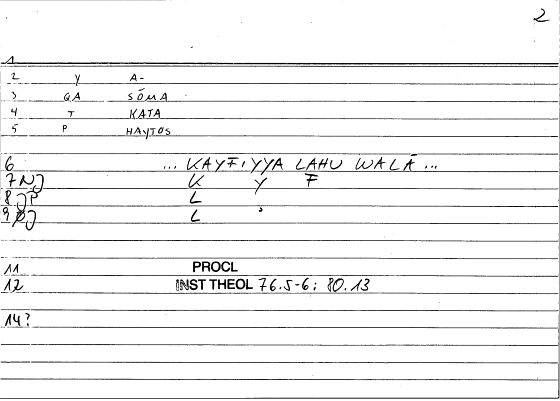 2
1
2 Y A-
3 QA SŌMA
4 T KATA
5 P HAYTOS
6 ... KAYFIYYA LAHU WALĀ ...
7 NJ K Y F
8 JP L
9 J L
11 PROCL
12 INST THEOL 76.5-6; 80.13
14?